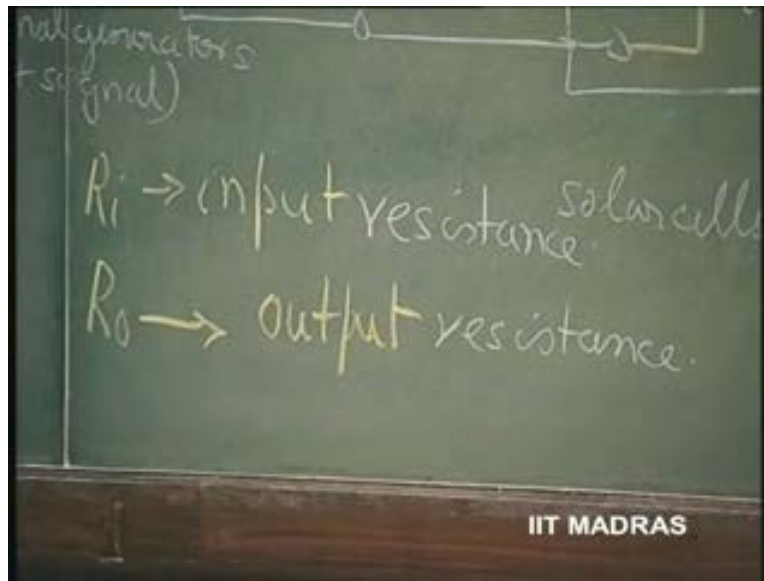 nal generators
+ signal)
Ri → input resistance.
solar cells
Ro → output resistance.
IIT MADRAS